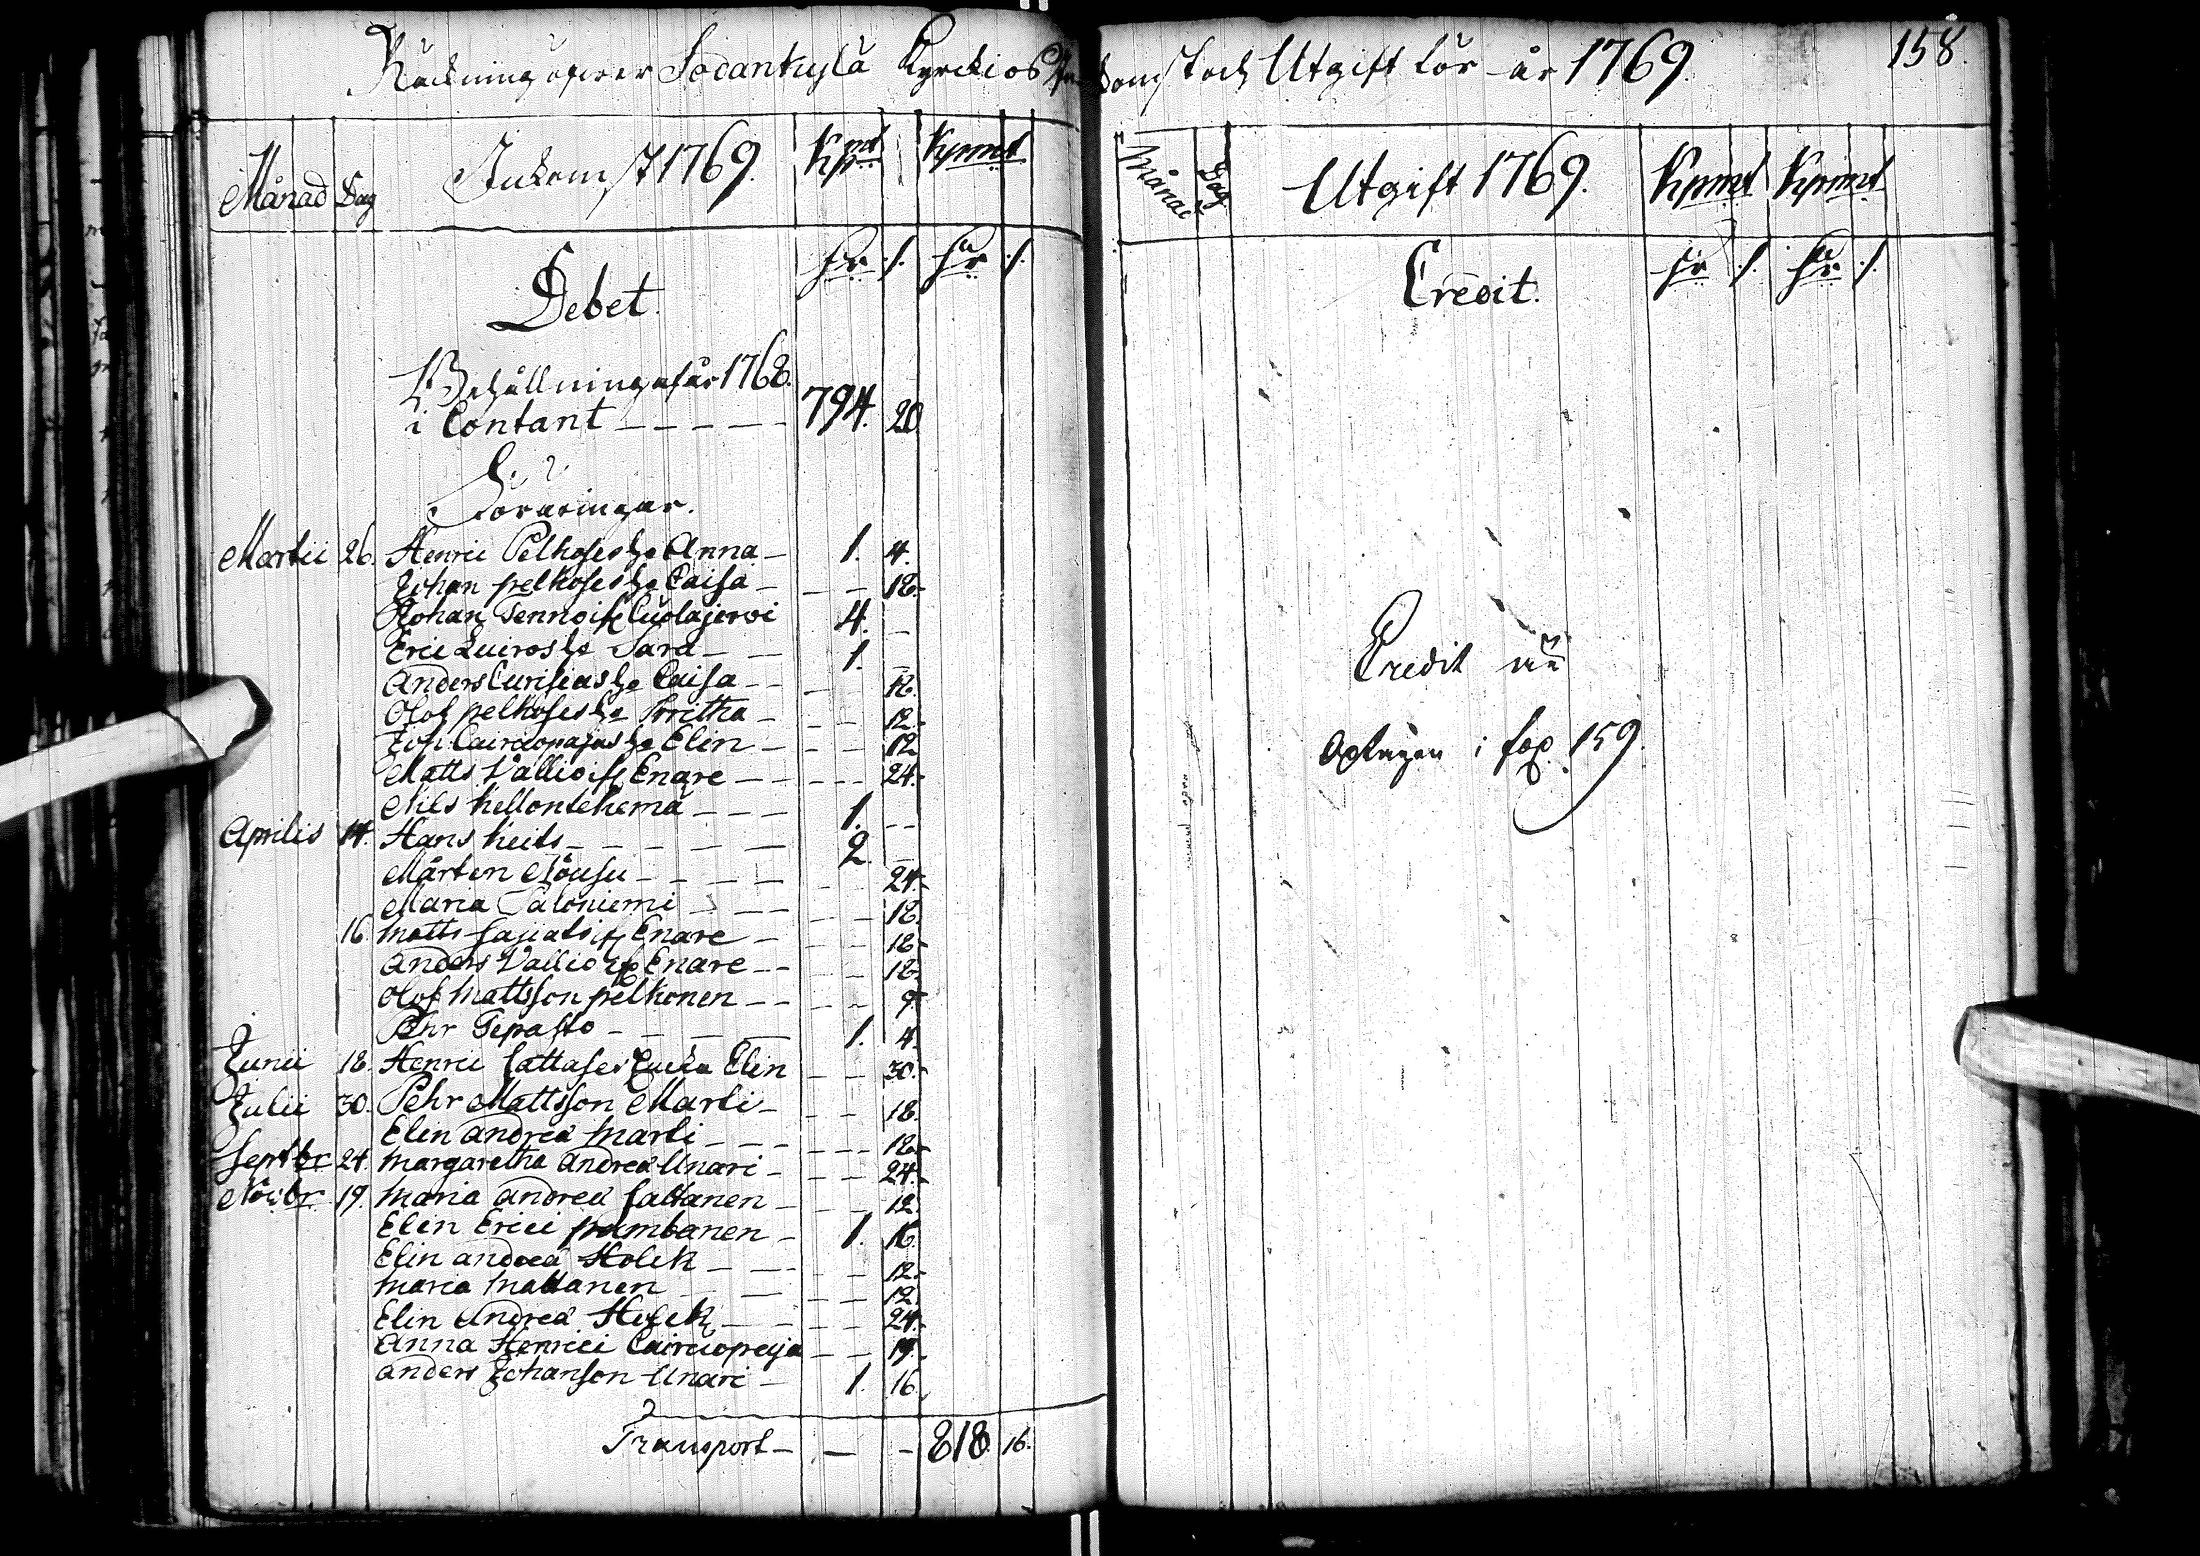 Räckning öfwer Sodankylä Kyrckios Inkomst och Utgift för år 1769.
158.
Månad Dag Inkomst 1769. Kpmt Kpmt
Dr /. Dr /.
Debet.
Behållning ifrån 1768.
i Contant 794. 20.
Föräringar.
Martii 26. Henric Pelkoses ha Anna 1. 4.
Johan pelkoses ha Caisa 18.
Johan Tennoisk Cuolajerwi 4.
Eric Quiros ha Sara 1.
Anders Curikias ha Caisa 12.
Olof pelkoses ha Britha 12.
Joh: Cairuopajas ha Elin 12
Matts Vallio if Enare 24.
Nils Kellontekemä 1.
Aprilis 14. Hans Keits 2.
Mårten Mousu 24.
Maria Saloniemi 18.
16. Matts Sajiats if Enare 18.
Anders Vallio if Enare 18.
Olof Mattsson pelkonen 9.
Pehr Tepasto 1. 4.
Junii 18. Henric Sattases Encka Elin 30.
Julii 30. Pehr Mattsson Marti 18.
Elin Andreæ Marti 18.
Septbr 24. Margaretha Andreæ Unari 24.
Novbr 19. Maria Andreæ Sattanen 12.
Elin Erici pumbanen 1. 16.
Elin Andreæ Holck 12.
Maria Mattanen 12.
Elin Andreæ Holck 24.
Anna Henrici Cairuopaja 19.
Anders Johanson Unari 1. 16.
Transport 818. 16.
Månad Dag Utgift 1769. Kpmt Kpmt
Dr /. Dr /.
Credit.
Credit
optagen i fol. 159.